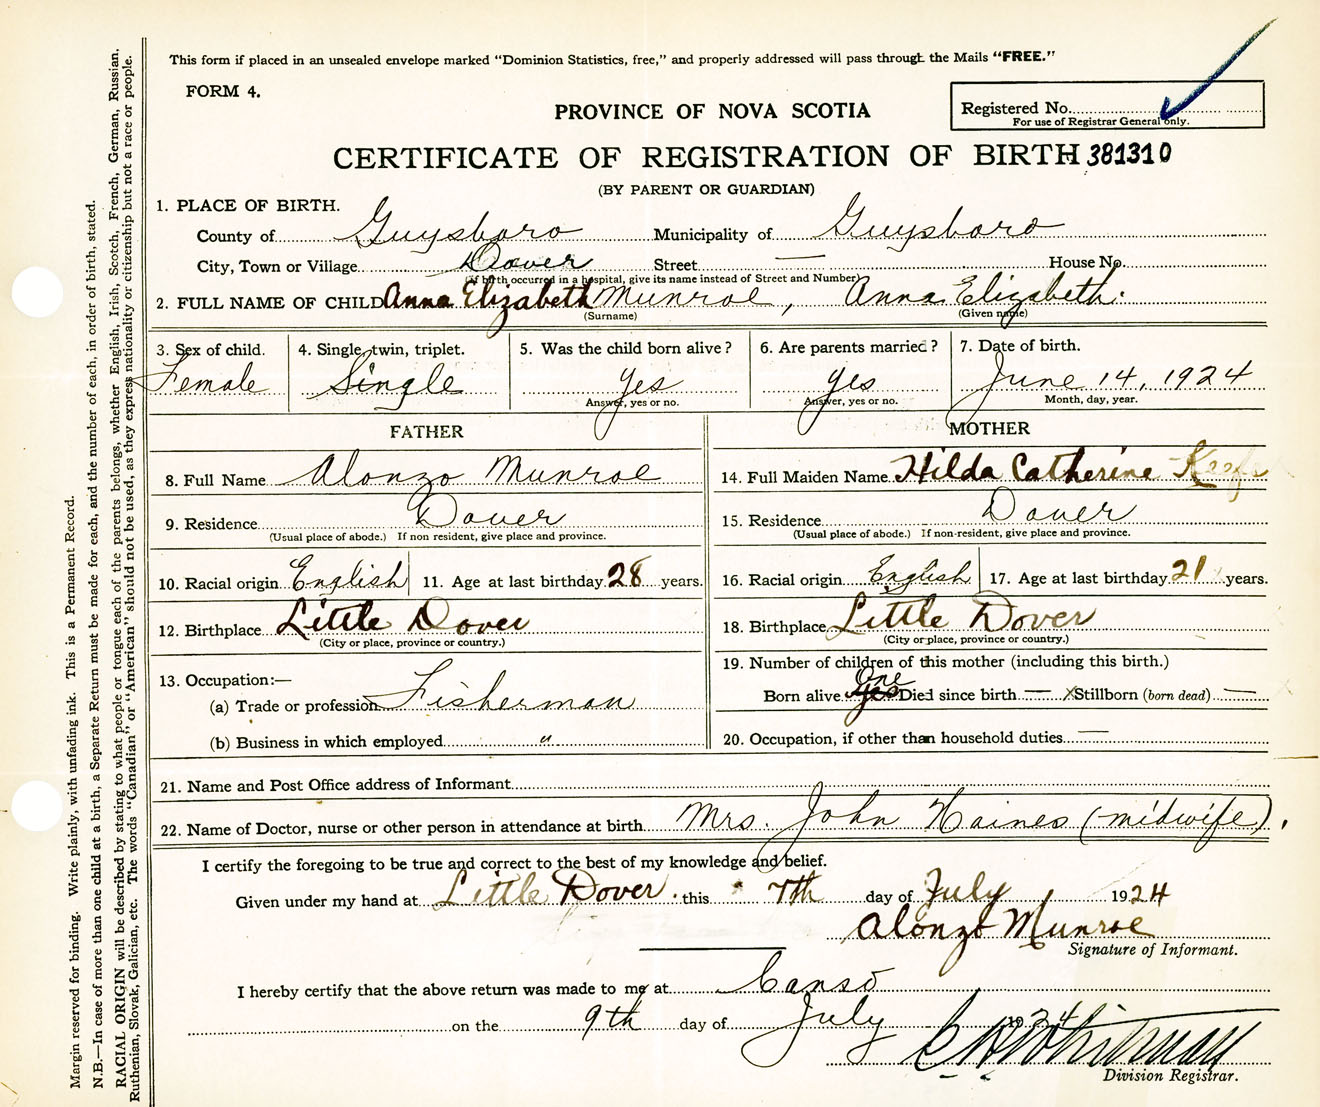 This form if placed in an unsealed envelope marked "Dominion Statistics, free," and properly addressed will pass through the Mails "FREE."
FORM 4.
PROVINCE OF NOVA SCOTIA
Registered No.
For use of Registrar General only.
CERTIFICATE OF REGISTRATION OF BIRTH 381310
(BY PARENT OR GUARDIAN)
1. PLACE OF BIRTH.
County of Guysboro Municipality of Guysboro
City, Town or Village Dover Street — House No.
(If birth occurred in a hospital, give its name instead of Street and Number)
2. FULL NAME OF CHILD Anna Elizabeth Munroe, Anna Elizabeth.
(Surname) (Given name)
3. Sex of child. 4. Single, twin, triplet. 5. Was the child born alive? 6. Are parents married? 7. Date of birth.
Female Single Yes Yes June 14, 1924
Answer, yes or no. Answer, yes or no. Month, day, year.
FATHER MOTHER
8. Full Name Alonzo Munroe 14. Full Maiden Name Hilda Catherine
9. Residence Dover 15. Residence Dover
(Usual place of abode.) If non resident, give place and province. (Usual place of abode.) If non-resident, give place and province.
10. Racial origin English 11. Age at last birthday 28 years. 16. Racial origin English 17. Age at last birthday 21 years.
12. Birthplace Little Dover 18. Birthplace Little Dover
(City or place, province or country.) (City or place, province or country.)
13. Occupation:— 19. Number of children of this mother (including this birth.)
(a) Trade or profession Fisherman Born alive Yes One Died since birth — Stillborn (born dead) —
(b) Business in which employed " 20. Occupation, if other than household duties —
21. Name and Post Office address of Informant
22. Name of Doctor, nurse or other person in attendance at birth Mrs. John Haines (midwife),
I certify the foregoing to be true and correct to the best of my knowledge and belief.
Given under my hand at Little Dover. this 7th day of July 1924
Alonzo Munroe
Signature of Informant.
I hereby certify that the above return was made to me at Canso
on the 9th day of July 1924
Whitman
Division Registrar.
Margin reserved for binding. Write plainly, with unfading ink. This is a Permanent Record.
N.B.—In case of more than one child at a birth, a Separate Return must be made for each, and the number of each, in order of birth, stated.
RACIAL ORIGIN will be described by stating to what people or tongue each of the parents belongs, whether English, Irish, Scotch, French, German, Russian.
Ruthenian, Slovak, Galician, etc. The words "Canadian" or "American" should not be used, as they express nationality or citizenship but not a race or people.